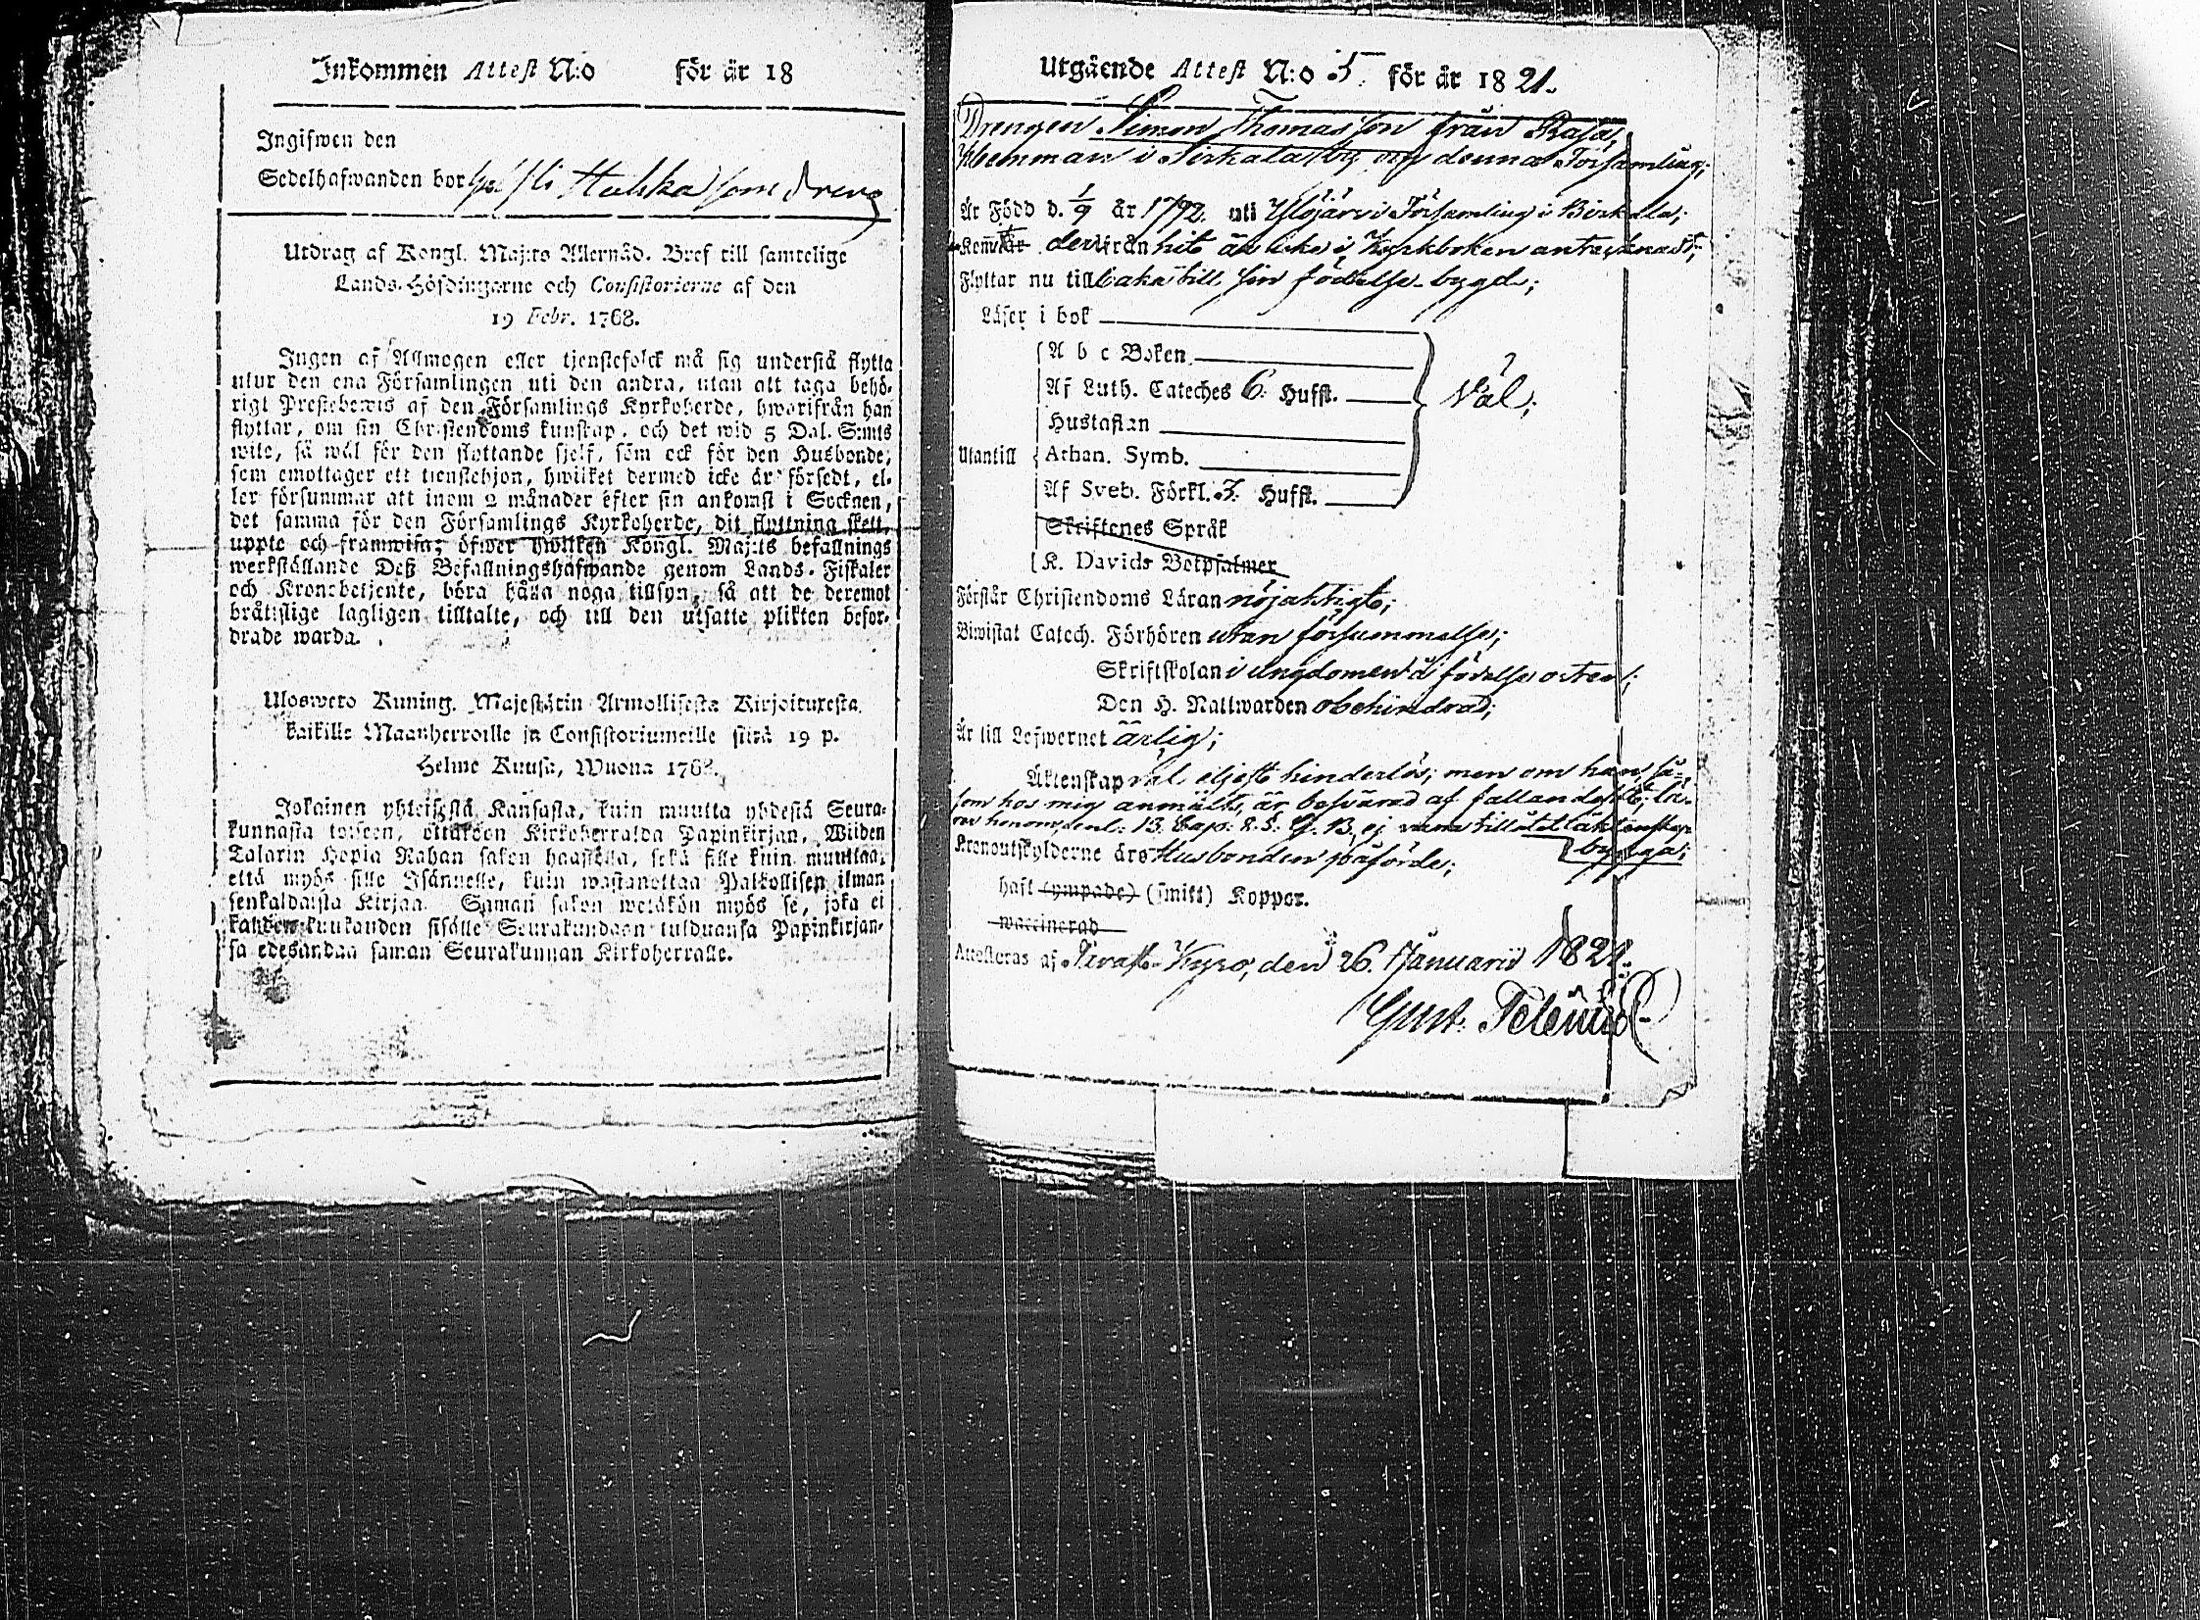 Inkommen Attest N:o för år 18
Ingifwen den
Sedelhafwanden bor på Yli Huhka som dreng
Utdrag af Kongl. Maj:ts Allernåd. Bref till samtelige
Lands-Höfdingarne och Consistorierne af den
19 Febr. 1768.
Ingen af Allmogen eller tjenstefolck må sig understå flytta
utur den ena Församlingen uti den andra, utan att taga behö-
rigt Prestebewis af den Församlings Kyrkoherde, hwarifrån han
flyttar, om sin Christendoms kunskap, och det wid 5 Dal. S:mts
wite, så wäl för den flyttande sjelf, som ock för den Husbonde,
som emottager ett tjenstehjon, hwilket dermed icke är försedt, el-
ler försummar att inom 2 månader efter sin ankomst i Socknen,
det samma för den Församlings Kyrkoherde, dit flyttning skett,
uppte och framwisa; öfwer hwilken Kongl. Maj:ts befallnings
werkställande Deß Befallningshafwande genom Lands-Fiskaler
och Kronobetjente, böra hålla noga tillsyn, så att de deremot
bråttslige lagligen tilltalte, och till den utsatte plikten befor-
drade warda.
Ulosweto Kuning. Majestätin Armollisesta Kirjoituxesta
kaikille Maanherroille ja Consistoriumeille siitä 19 p.
Helme Kuusa, Wuona 1768.
Jokainen yhteisestä Kansasta, kuin muutta yhdestä Seura-
kunnasta toiseen, ottakoon Kirkoherralda Papinkirjan, Wiiden
Talarin Hopia Rahan sakon haastella, sekä sille kuin muuttaa,
että myös sille Isännelle, kuin wastanottaa Palkollisen ilman
senkaldaista Kirjaa. Saman sakon wetäkön myös se, joka ei
kahden kuukauden sisälle Seurakundaan tulduansa Papinkirjan-
sa edesandaa saman Seurakunnan Kirkoherralle.
Utgående Attest N:o 5. för år 1821.
Drengen Simon Thomasson från Rasa,
Hemman i Sirkala by och denna Församling;
Är Född d. 1/9 år 1792. uti Ylöjärvi Församling i Birkala;
Kom̃it derifrån hit är icke i Kyrkboken antecknadt;
Flyttar nu tillbaka till sin födelse-bygd;
Läser i bok
A b c Boken
Af Luth. Cateches 6. Hufst.
Hustaflan
Utantill Athan. Symb.
Af Sveb. Förkl. 3. Hufst.
Skriftenes Språk
K. Davids Botpsalmer
Väl;
Förstår Christendoms Läran nöjaktigt;
Biwistat Catech. Förhören utan försummelse;
Skriftskolan i ungdomen å födelse orten;
Den H. Nattwarden obehindrad;
Är till Lefwernet ärlig;
Äktenskap väl eljest hinderlös; men om han, så-
som hos mig anmälts, är besvärad af fallandesot, lä-
rer honom, enl. 13. Cap. 8. §. G. B. ej vara tillåtet äktenskap
bygga;
Kronoutskylderne äro Husbonden påförde;
haft (ympade) (smitt) Koppor.
waccinerad
Attesteras af Tavast-Kyro, den 26. Januarii 1821.
Gust. Telenius